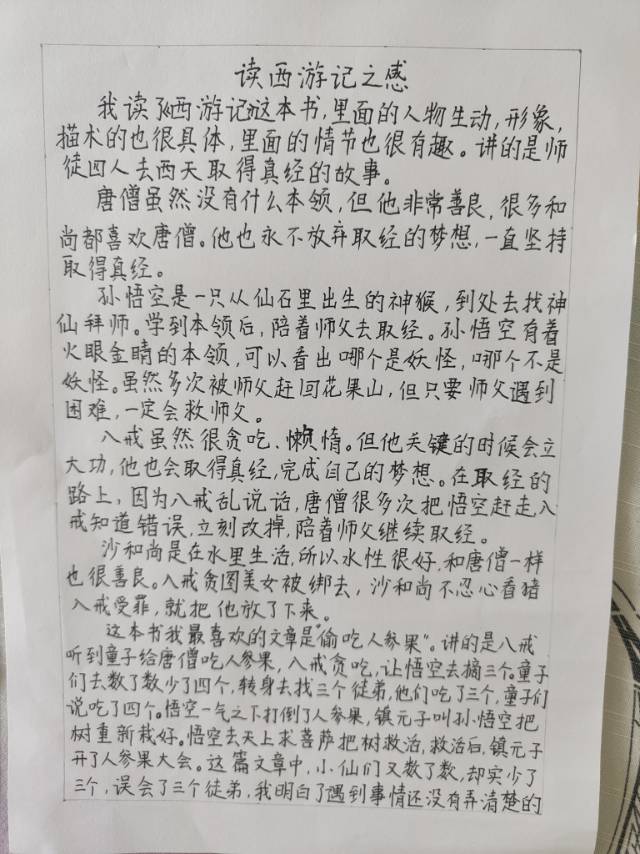 读西游记之感
我读了《西游记》这本书，里面的人物生动，形象，
描术的也很具体，里面的情节也很有趣。讲的是师
徒四人去西天取得真经的故事。
唐僧虽然没有什么本领，但他非常善良，很多和
尚都喜欢唐僧。他也永不放弃取经的梦想，一直坚持
取得真经。
孙悟空是一只从仙石里出生的神猴，到处去找神
仙拜师。学到本领后，陪着师父去取经。孙悟空有着
火眼金睛的本领，可以看出哪个是妖怪，哪个不是
妖怪。虽然多次被师父赶回花果山，但只要师父遇到
困难，一定会救师父。
八戒虽然很贪吃、懒惰。但他关键的时候会立
大功，他也会取得真经，完成自己的梦想。在取经的
路上，因为八戒乱说话，唐僧很多次把悟空赶走，八
戒知道错误，立刻改掉，陪着师父继续取经。
沙和尚是在水里生活，所以水性很好，和唐僧一样
也很善良。八戒贪图美女被绑去，沙和尚不忍心看猪
八戒受罪，就把他放了下来。
这本书我最喜欢的文章是“偷吃人参果”。讲的是八戒
听到童子给唐僧吃人参果，八戒贪吃，让悟空去摘三个。童子
们去数了数少了四个，转身去找三个徒弟，他们吃了三个，童子们
说吃了四个。悟空一气之下打倒了人参果，镇元子叫孙悟空把
树重新栽好。悟空去天上求菩萨把树救治，救治后，镇元子
开了人参果大会。这篇文章中，小仙们又数了数，却实少了
三个，误会了三个徒弟，我明白了遇到事情还没有弄清楚的